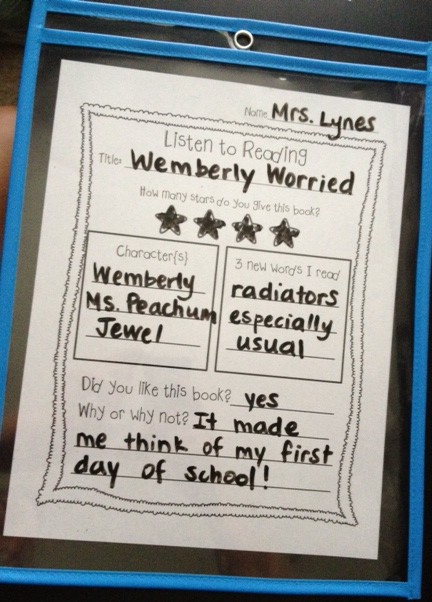 Name Mrs. Lynes
Listen to Reading
Title: Wemberly Worried
How many stars do you give this book?
Character(s)
Wemberly
Ms. Peachum
Jewel
3 new words I read
radiators
especially
usual
Did you like this book? yes
Why or why not? It made
me think of my first
day of school!